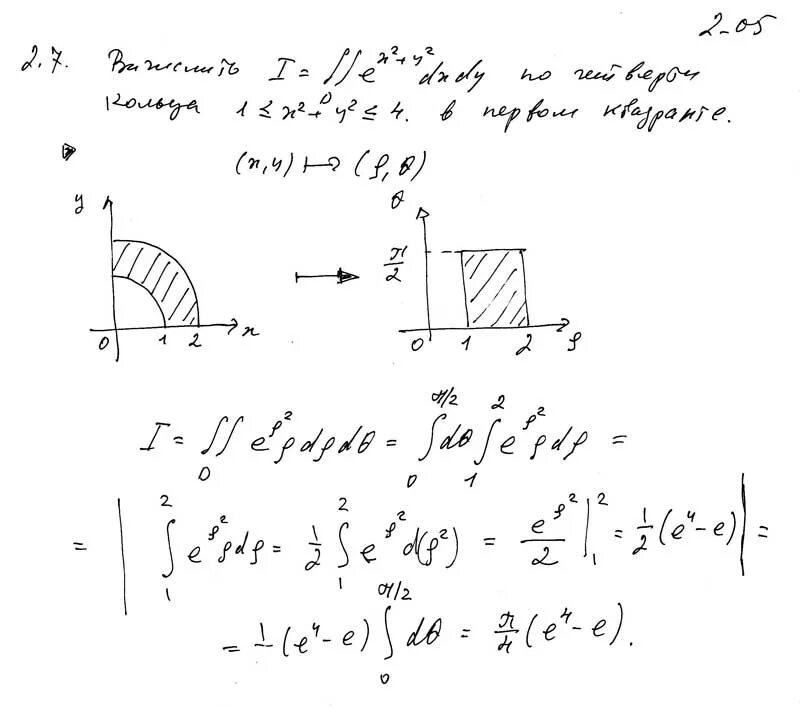 2-05
2.7. Вычислить I = ∬ e^{x²+y²} dxdy по четверти
D
кольца 1 ≤ x² + y² ≤ 4. в первом квадранте.
(x,y) ↦ (ρ, θ)
y
0 1 2 x
θ
π/2
0 1 2 ρ
I = ∬_D e^{ρ²} ρ dρ dθ = ∫_0^{π/2} dθ ∫_1^2 e^{ρ²} ρ dρ =
= | ∫_1^2 e^{ρ²} ρ dρ = 1/2 ∫_1^2 e^{ρ²} d(ρ²) = e^{ρ²}/2 |_1^2 = 1/2 (e⁴ - e) | =
= 1/ (e⁴ - e) ∫_0^{π/2} dθ = π/4 (e⁴ - e).